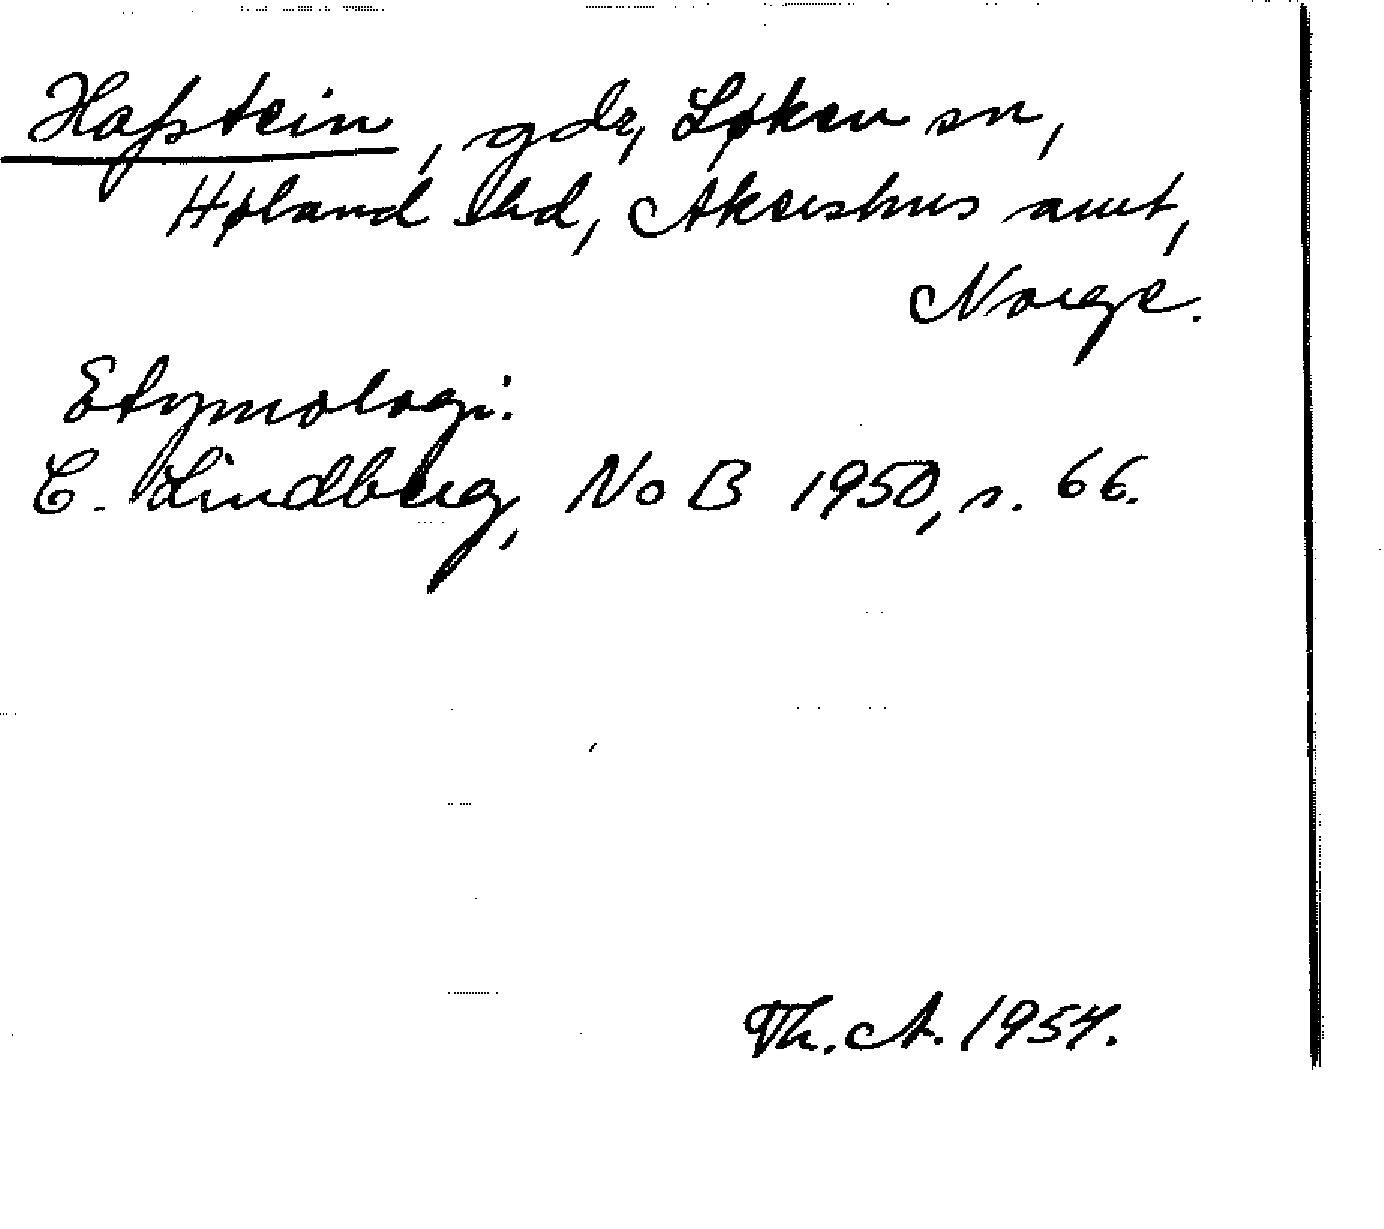 Hafstein, gdr, Løken sn,
Høland hd, Akershus amt,
Norge.
Etymologi:
C. Lindberg, NoB 1950, s. 66.
Th. A. 1954.